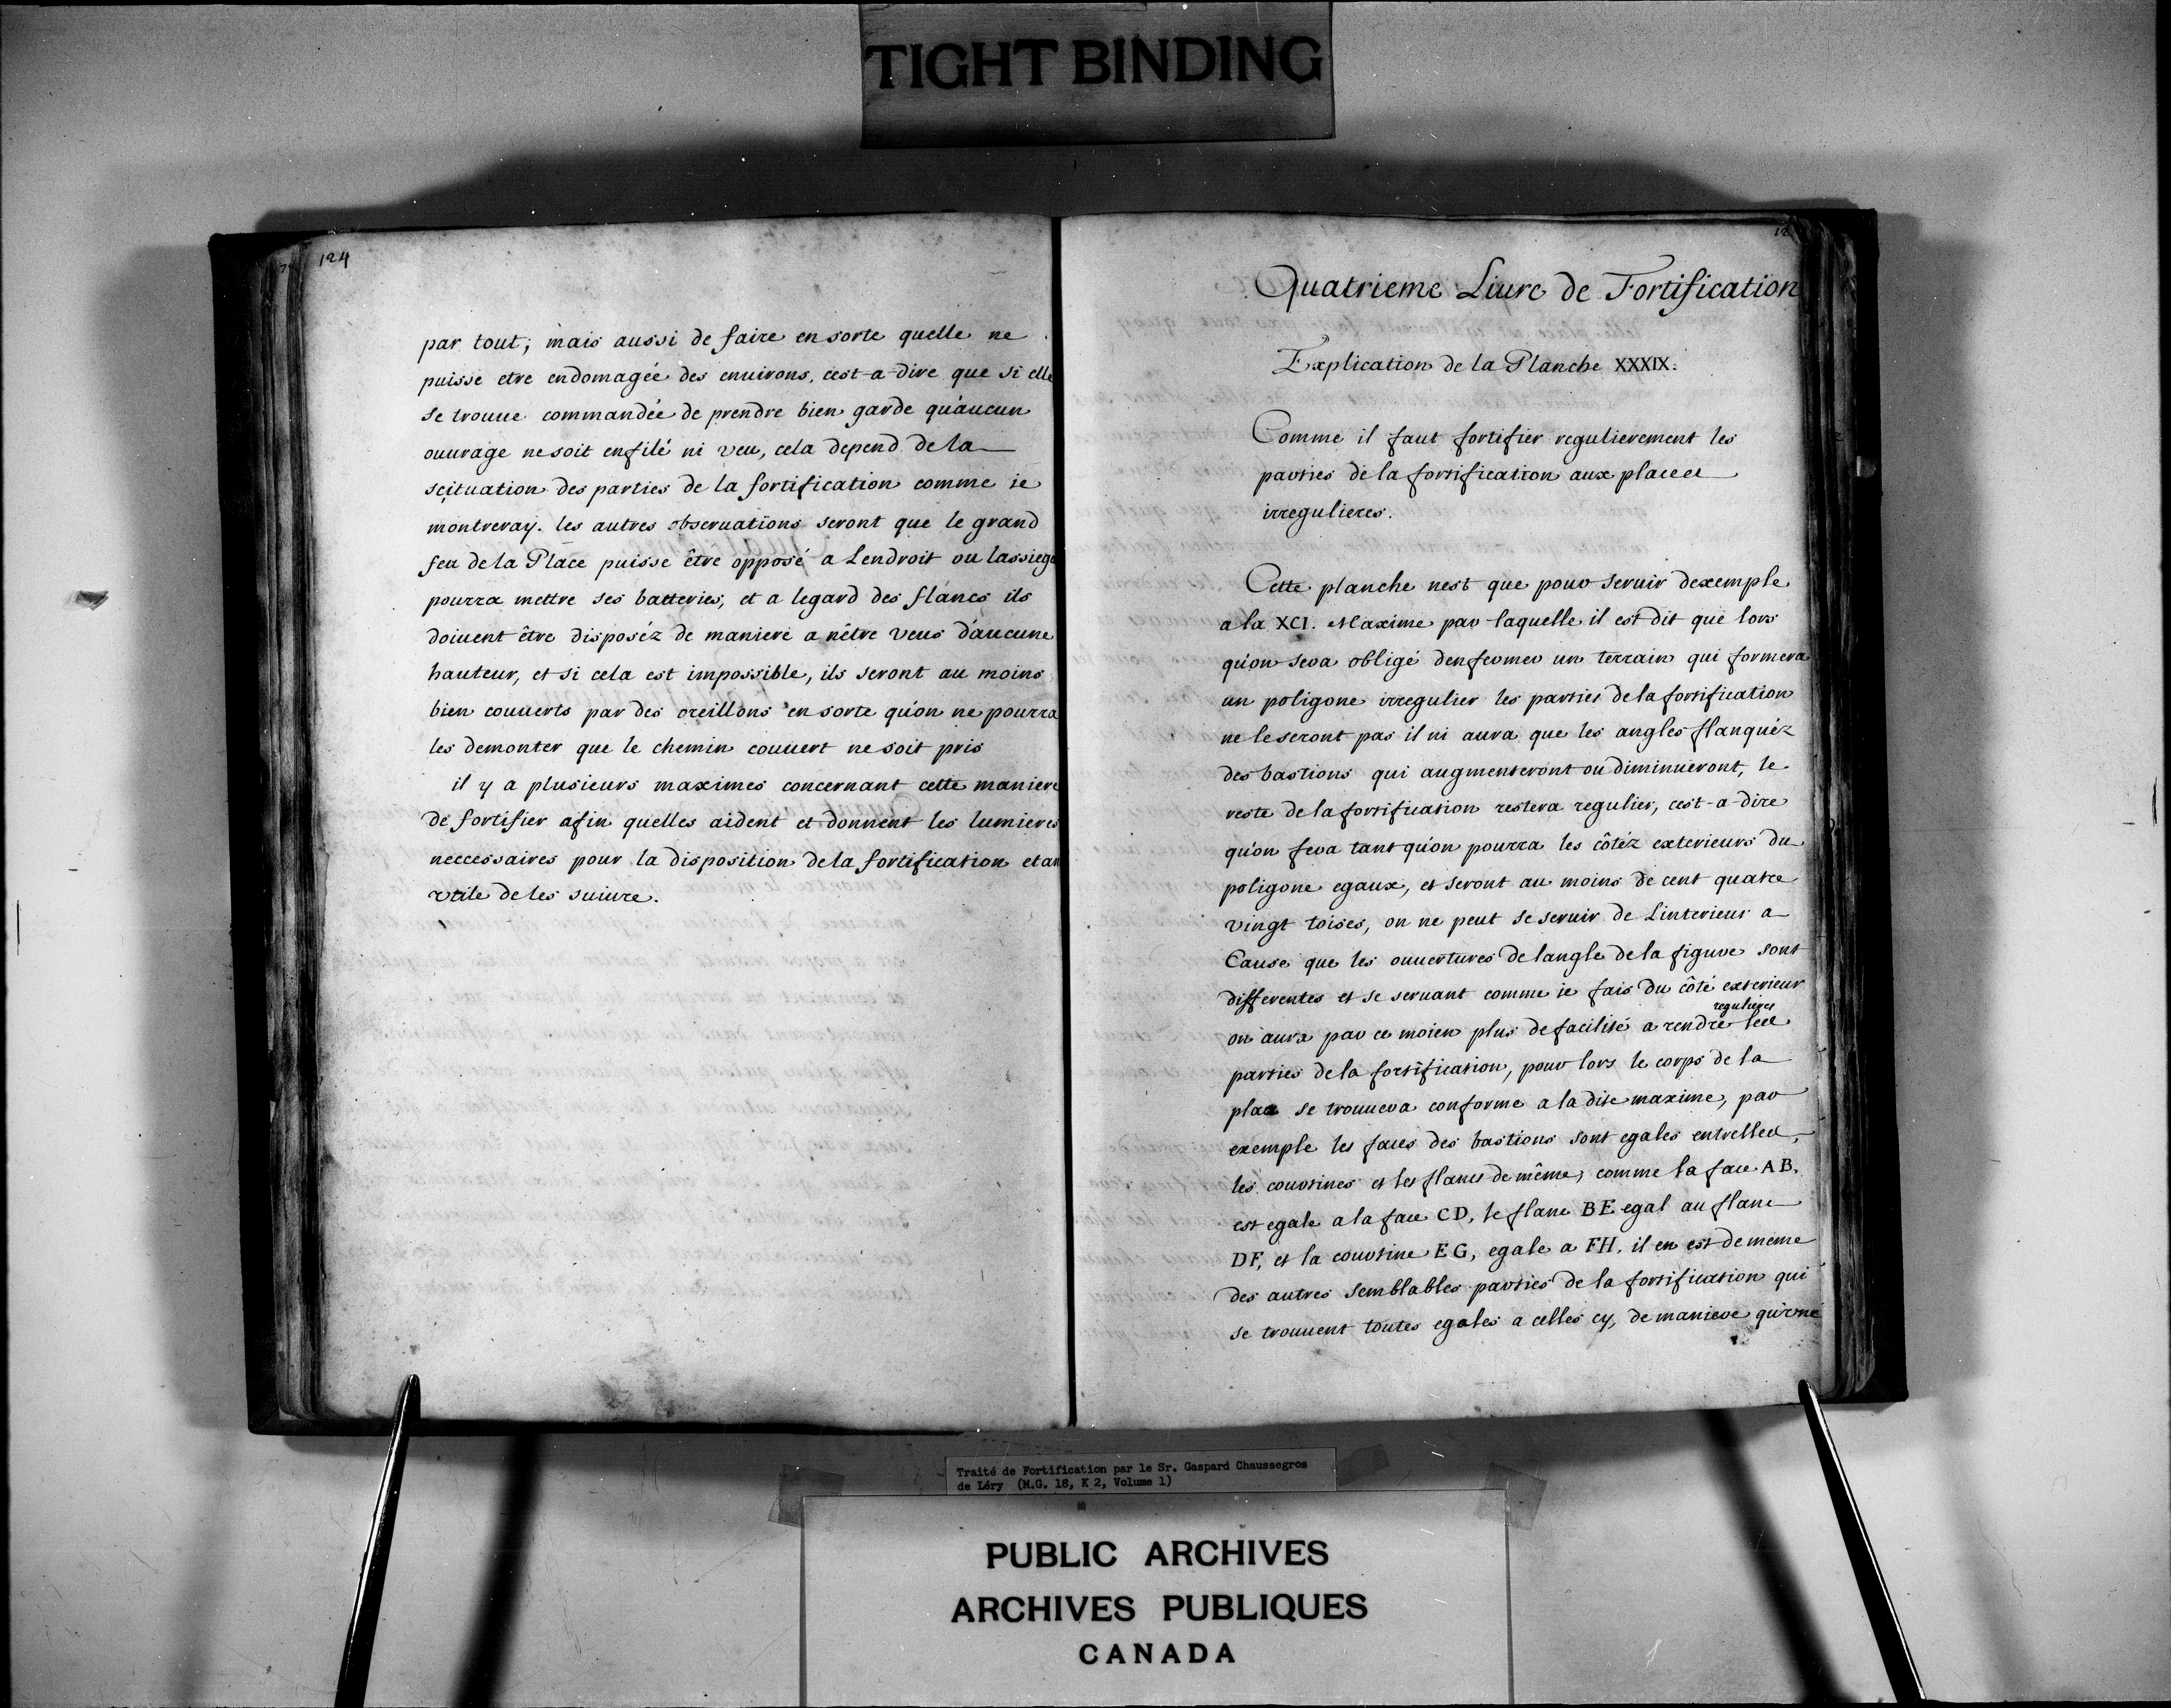 TIGHT BINDING
124
par tout; mais aussi de faire en sorte quelle ne
puisse etre endomagée des enuirons, cest-a-dire que si elle
se trouue commandée de prendre bien garde qu'aucun
ouurage ne soit enfilé ni veu, cela depend de la
scituation des parties de la fortification comme ie
montreray. les autres obseruations seront que le grand
feu de la Place puisse être opposé a Lendroit ou lassiege
pourra mettre ses batteries, et a legard des flancs ils
doiuent être disposéz de maniere a nêtre veus d'aucune
hauteur, et si cela est impossible, ils seront au moins
bien couuerts par des oreillons en sorte qu'on ne pourra
les demonter que le chemin couuert ne soit pris
il y a plusieurs maximes concernant cette maniere
de fortifier afin quelles aident et donnent les lumieres
neccessaires pour la disposition de la fortification et
vtile de les suiure.
12
Quatrieme Liure de Fortification
Explication de la Planche XXXIX.
Comme il faut fortifier regulierement les
parties de la fortification aux places
irregulieres.
Cette planche nest que pour seruir dexemple
a la XCI. Maxime par laquelle il est dit que lors
qu'on sera obligé denfermer un terrain qui formera
un poligone irregulier les parties de la fortification
ne le seront pas il ni aura que les angles flanquéz
des bastions qui augmenteront ou diminueront, le
reste de la fortification restera regulier, cest-a-dire
qu'on fera tant qu'on pourra les côtéz exterieurs du
poligone egaux, et seront au moins de cent quatre
vingt toises, on ne peut se seruir de Linterieur a
Cause que les ouuertures de langle de la figure sont
differentes et se seruant comme ie fais du côté exterieur
on aura par ce moien plus de facilité a rendre regulieres les
parties de la fortification, pour lors le corps de la
place se trouuera conforme a la dite maxime, par
exemple les faces des bastions sont egales entrelles,
les courtines et les flancs de même, comme la face AB.
est egale a la face CD, le flanc BE egal au flanc
DF, et la courtine EG, egale a FH. il en est de même
des autres semblables parties de la fortification qui
se trouuent toutes egales a celles cy, de maniere qu'une
Traité de Fortification par le Sr. Gaspard Chaussegros
de Léry (M.G. 18, K 2, Volume 1)
PUBLIC ARCHIVES
ARCHIVES PUBLIQUES
CANADA